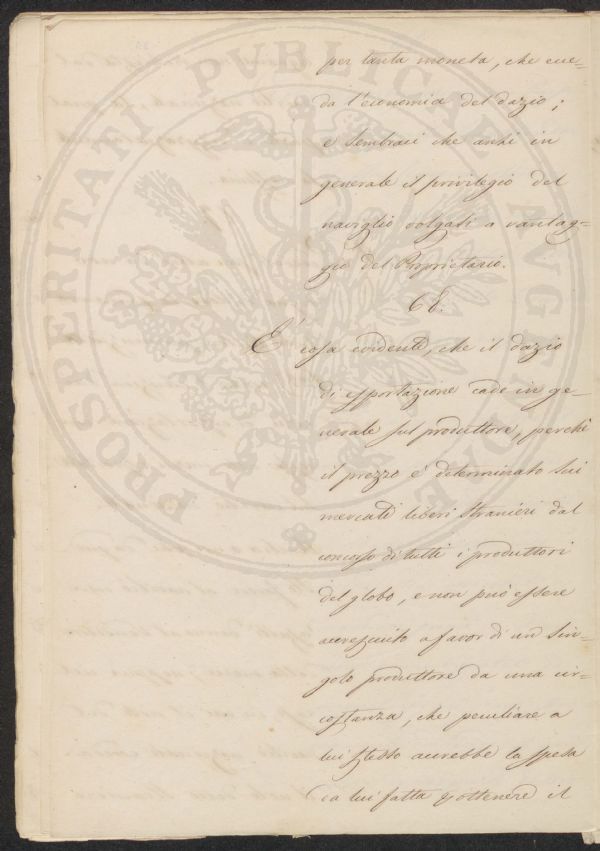 per tanta moneta, che ecce=
da l'economia del dazio;
e sembraci che anzi in
generale il privilegio del
naviglio volgasi a vantag=
gio del Proprietario.
68.
É cosa evidente, che il dazio
di esportazione cade in ge=
nerale sul produttore, perchè
il prezzo é determinato sui
mercati liberi stranieri dal
concorso di tutti i produttori
del globo, e non può essere
accresciuto a favor di un sin=
golo produttore da una cir=
costanza, che peculiare a
lui stesso accrebbe la spesa
da lui fatta p ottenere il
PROSPERITATI PVBLICAE AVGENDAE